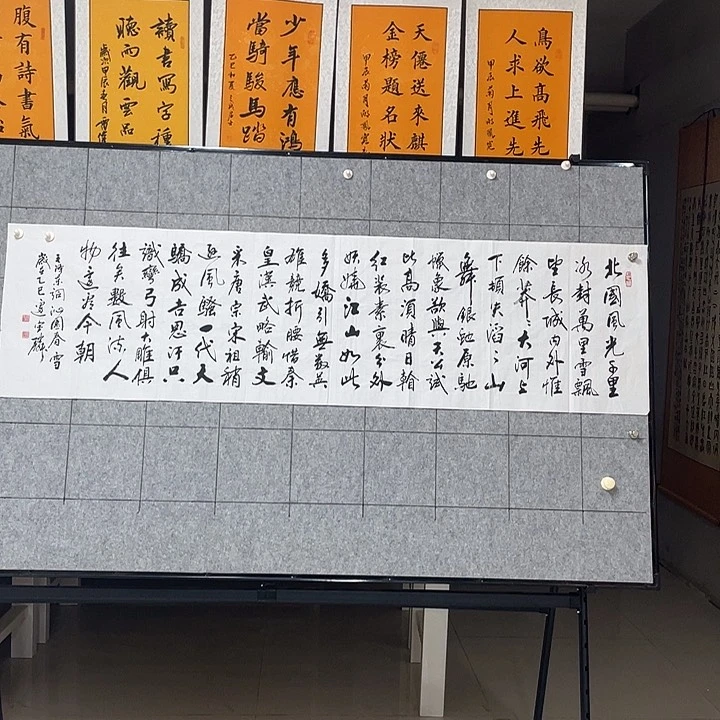 鳥欲高飛先
人求上進先
甲辰菊月
天僊送來麒
金榜題名狀
甲辰菊月
少年應有鴻
當騎駿馬踏
乙巳初夏
讀書寫字種
聽雨觀雲品
歲次甲辰
腹有詩書氣
北國風光千里
冰封萬里雪飄
望長城內外惟
餘莽〻大河上
下頓失滔〻山
舞銀蛇原馳
蠟象欲與天公試
比高須晴日
紅裝素裹分外
妖嬈江山如此
多嬌引無數英
雄競折腰惜秦
皇漢武略輸文
采唐宗宋祖稍
遜風騷一代天
驕成吉思汗只
識彎弓射大雕俱
往矣數風流人
物還看今朝
毛澤東詞沁園春雪
歲在乙巳